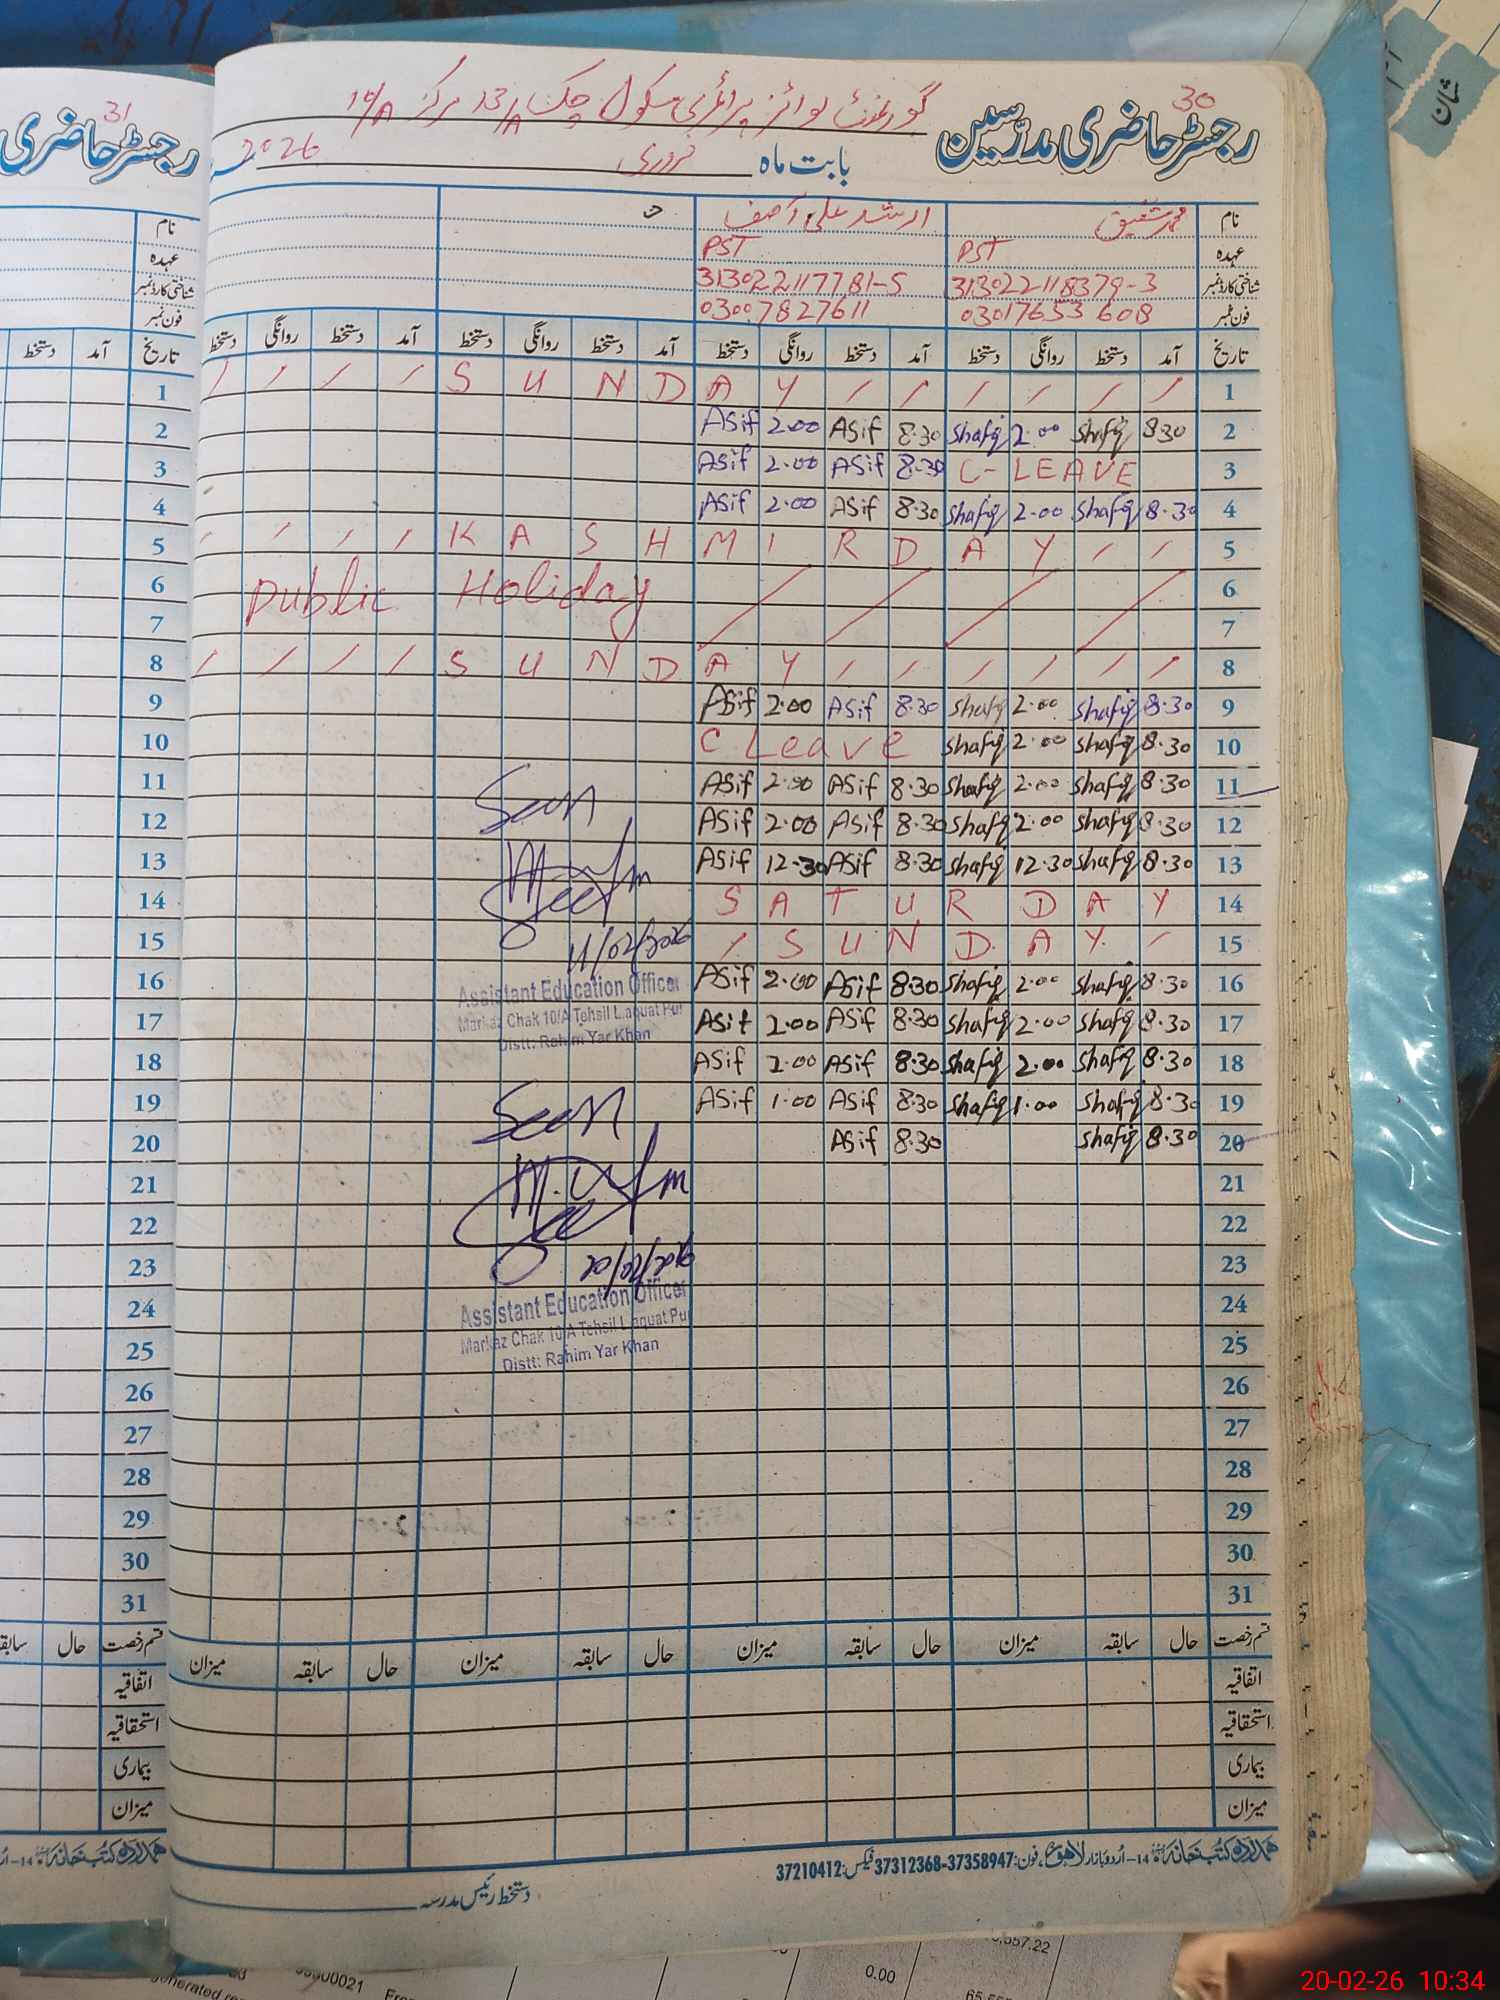 30
رجسٹر حاضری مدرسین گورنمنٹ بوائز پرائمری سکول چک 13/A مرکز 10/A
بابت ماہ فروری 2026
نام محمد شفیق ارشد علی آصف
عہدہ PST PST
شناختی کارڈ نمبر 313022118379-3 313022117781-5
فون نمبر 03017653608 03007827611
تاریخ آمد دستخط روانگی دستخط آمد دستخط روانگی دستخط آمد دستخط روانگی دستخط آمد دستخط روانگی دستخط
1 / / / / S U N D A Y / / / / / /
2 Asif 2.00 Asif 8.30 Shafiq 2.00 Shafiq 8.30
3 Asif 2.00 Asif 8.30 C-LEAVE
4 Asif 2.00 Asif 8.30 Shafiq 2.00 Shafiq 8.30
5 / / / / K A S H M I R D A Y / /
6 Public Holiday
7
8 / / / / S U N D A Y / / / / / /
9 Asif 2.00 Asif 8.30 Shafiq 2.00 Shafiq 8.30
10 C Leave Shafiq 2.00 Shafiq 8.30
11 Asif 2.00 Asif 8.30 Shafiq 2.00 Shafiq 8.30
12 Asif 2.00 Asif 8.30 Shafiq 2.00 Shafiq 8.30
13 Asif 12.30 Asif 8.30 Shafiq 12.30 Shafiq 8.30
14 S A T U R D A Y
15 / S U N D A Y /
16 Asif 2.00 Asif 8.30 Shafiq 2.00 Shafiq 8.30
17 Asif 2.00 Asif 8.30 Shafiq 2.00 Shafiq 8.30
18 Asif 2.00 Asif 8.30 Shafiq 2.00 Shafiq 8.30
19 Asif 1.00 Asif 8.30 Shafiq 1.00 Shafiq 8.30
20 Asif 8.30 Shafiq 8.30
21
22
23
24
25
26
27
28
29
30
31
Seen
11/02/2026
Assistant Education Officer
Markaz Chak 10/A Tehsil Liaquat Pur
Distt: Rahim Yar Khan
Seen
Assistant Education Officer
Markaz Chak 10/A Tehsil Liaquat Pur
Distt: Rahim Yar Khan
قسم رخصت حال سابقہ میزان حال سابقہ میزان حال سابقہ میزان حال سابقہ میزان
اتفاقیہ
استحقاقیہ
بیماری
میزان
ہمدرد کتب خانہ 14-اُردو بازار لاہور، فون: 37358947-37312368 فیکس: 37210412
دستخط رئیس مدرسہ
31
رجسٹر حاضری
نام
عہدہ
شناختی کارڈ نمبر
فون نمبر
تاریخ آمد دستخط
1
2
3
4
5
6
7
8
9
10
11
12
13
14
15
16
17
18
19
20
21
22
23
24
25
26
27
28
29
30
31
قسم رخصت حال
اتفاقیہ
استحقاقیہ
بیماری
میزان
ہمدرد کتب خانہ 14-
0.00
20-02-26 10:34